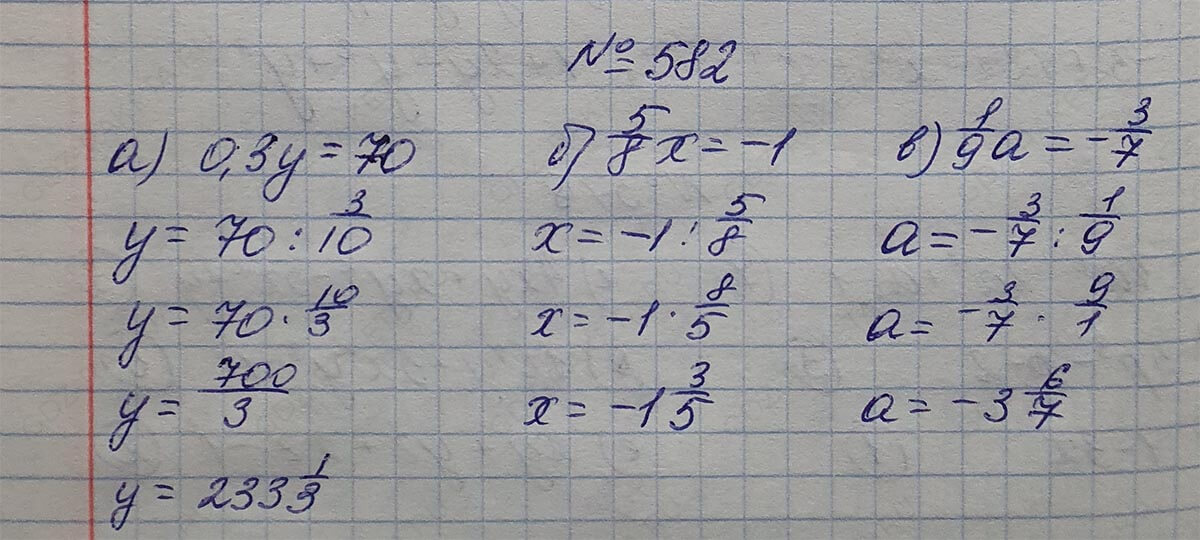 № 582
а) 0,3y = 70
y = 70 : 3/10
y = 70 · 10/3
y = 700/3
y = 233 1/3
б) 5/8 x = -1
x = -1 : 5/8
x = -1 · 8/5
x = -1 3/5
в) 1/9 a = - 3/7
a = - 3/7 : 1/9
a = - 3/7 · 9/1
a = -3 6/7